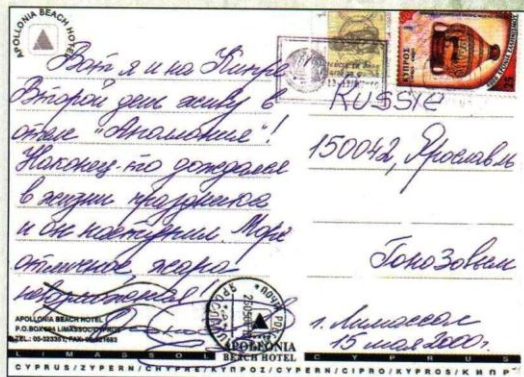 APOLLONIA BEACH HOTEL
Вот я и на Кипре!
Второй день живу в
отеле "Аполлония"!
Наконец-то дождался
в жизни праздника
и он наступил. Море
отличное, жара
невероятная!
RUSSIE
150042, Ярославль
Гонозовым
г. Лимассол
15 мая 2000г.
ΚΥΠΡΟΣ
25
ПОЧТА РОССИИ
ЯРОСЛАВЛЬ
APOLLONIA BEACH HOTEL
P.O.BOX 594 LIMASSOL CYPRUS
TEL: 05-323351, FAX: 05-321683
APOLLONIA
BEACH HOTEL
LIMASSOL CYPRUS
CYPRUS/ZYPERN/CHYPRE/ΚΥΠΡΟΣ/CYPERN/CIPRO/KYPROS/КИПР